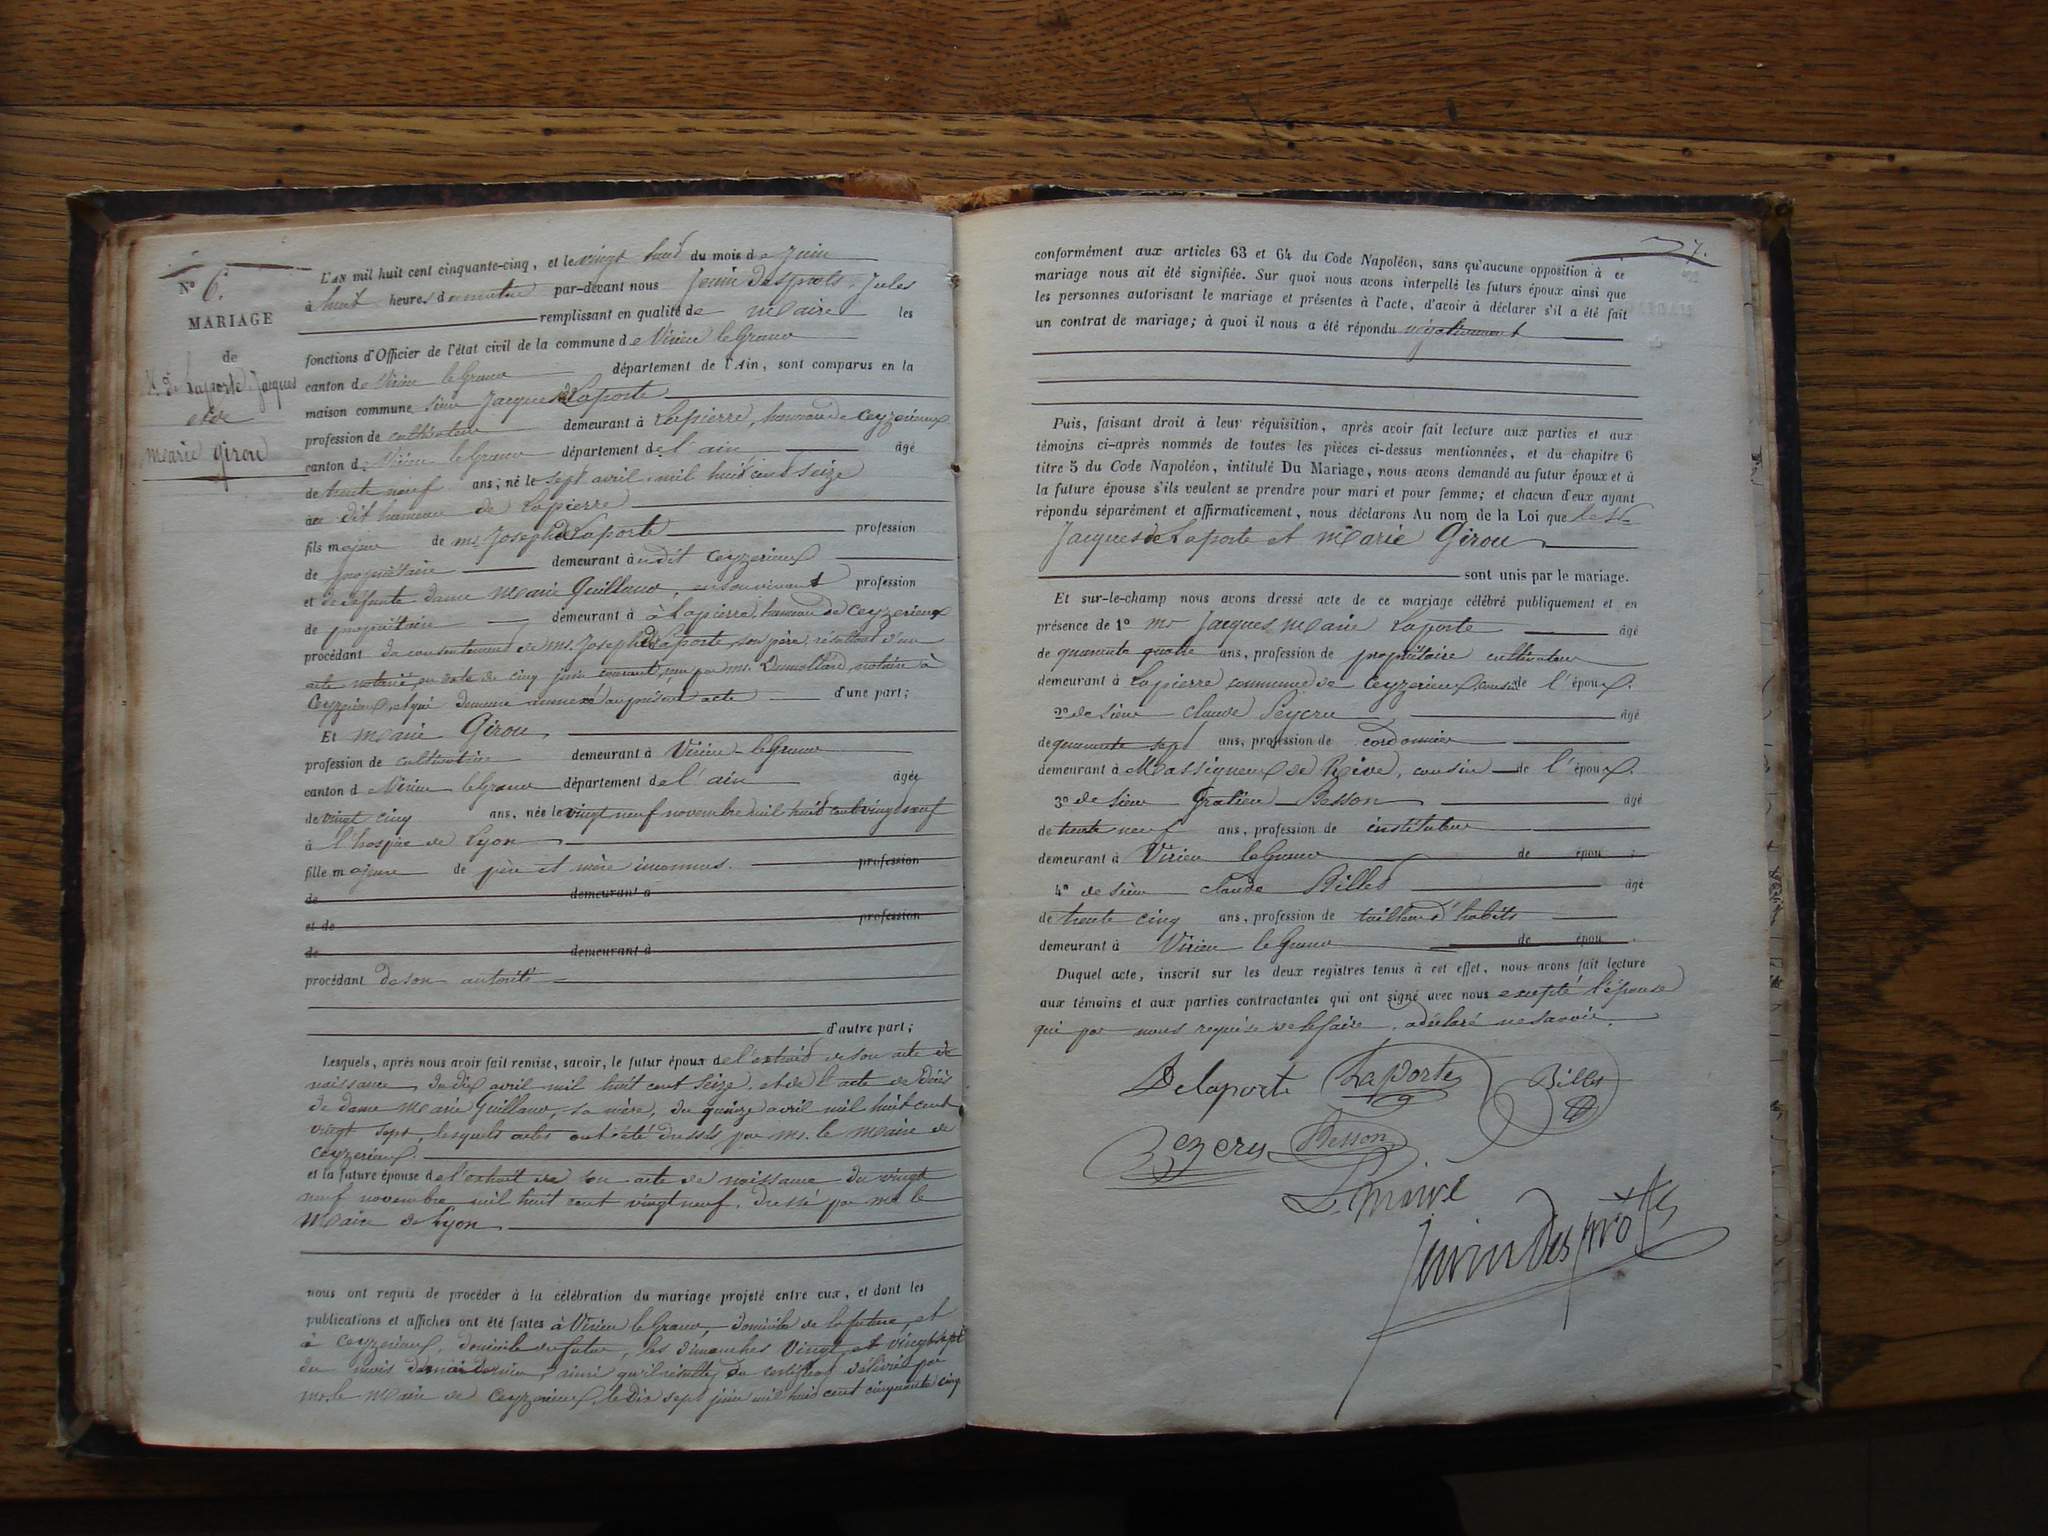 N° 6.
MARIAGE
de
de Laporte Jacques
et de
Marie Girou
L'AN mil huit cent cinquante-cinq, et le vingt huit du mois de Juin
à huit heures du matin par-devant nous Jenin Desprots, Jules
remplissant en qualité de Maire les
fonctions d'Officier de l'état civil de la commune de Virieu le Grand
canton de Virieu le Grand département de l'Ain, sont comparus en la
maison commune sieur Jacques de Laporte
profession de cultivateur demeurant à Lapierre, hameau de Ceyzerieux
canton de Virieu le Grand département de l'ain âgé
de trente neuf ans, né le sept avril mil huit cent seize
au dit hameau de Lapierre
fils majeur de mr. Joseph de Laporte profession
de propriétaire demeurant audit Ceyzerieux
et de défunte dame Marie Guilland, en son vivant profession
de propriétaire demeurant à à Lapierre, hameau de Ceyzerieux
procédant du consentement de mr. Joseph de Laporte, son père, résultant d'un
acte notarié, en date du cinq juin courant, reçu par mr. Dumollard, notaire à
Ceyzerieux, et qui demeure annexé au présent acte d'une part;
Et Marie Girou
profession de cultivatrice demeurant à Virieu le Grand
canton de Virieu le Grand département de l'ain âgée
de vingt cinq ans, née le vingt neuf novembre mil huit cent vingt neuf
à l'hospice de Lyon
fille majeure de père et mère inconnus. profession
de demeurant à
et de profession
de demeurant à
procédant de son autorité
d'autre part;
Lesquels, après nous avoir fait remise, savoir, le futur époux de l'extrait de son acte de
naissance, du dix avril mil huit cent seize, et de l'acte de décès
de dame Marie Guilland, sa mère, du quinze avril mil huit cent
vingt sept, lesquels actes ont été dressés par mr. le Maire de
Ceyzerieux.
et la future épouse de l'extrait de son acte de naissance du vingt
neuf novembre mil huit cent vingt neuf, dressé par mr le
Maire de Lyon
nous ont requis de procéder à la célébration du mariage projeté entre eux, et dont les
publications et affiches ont été faites à Virieu le Grand, domicile de la future, et
à Ceyzerieux, domicile du futur, les dimanches vingt et vingt sept
du mois de mai dernier, ainsi qu'il résulte du certificat délivré par
mr. le Maire de Ceyzerieux, le dix sept juin mil huit cent cinquante cinq
7.
conformément aux articles 63 et 64 du Code Napoléon, sans qu'aucune opposition à ce
mariage nous ait été signifiée. Sur quoi nous avons interpellé les futurs époux ainsi que
les personnes autorisant le mariage et présentes à l'acte, d'avoir à déclarer s'il a été fait
un contrat de mariage; à quoi il nous a été répondu négativement
Puis, faisant droit à leur réquisition, après avoir fait lecture aux parties et aux
témoins ci-après nommés de toutes les pièces ci-dessus mentionnées, et du chapitre 6
titre 5 du Code Napoléon, intitulé Du Mariage, nous avons demandé au futur époux et à
la future épouse s'ils veulent se prendre pour mari et pour femme; et chacun d'eux ayant
répondu séparément et affirmativement, nous déclarons Au nom de la Loi que
Jacques de Laporte et Marie Girou
sont unis par le mariage.
Et sur-le-champ nous avons dressé acte de ce mariage célébré publiquement et en
présence de 1° mr Jacques Marie Laporte âgé
de quarante quatre ans, profession de propriétaire cultivateur
demeurant à Lapierre commune de Ceyzerieux, cousin de l'époux.
2° de sieur Claude âgé
de quarante sept ans, profession de cordonnier
demeurant à Massigneux de Rive, cousin de l'époux.
3° de sieur Gratien Besson âgé
de trente neuf ans, profession de instituteur
demeurant à Virieu le Grand de épou ;
4° de sieur Claude Billet âgé
de trente cinq ans, profession de tailleur d'habits
demeurant à Virieu le Grand de épou .
Duquel acte, inscrit sur les deux registres tenus à cet effet, nous avons fait lecture
aux témoins et aux parties contractantes qui ont signé avec nous excepté l'épouse
qui par nous requise de le faire, a déclaré ne savoir.
Delaporte Laporte Billet
Besson
Le maire
Jenin Desprots